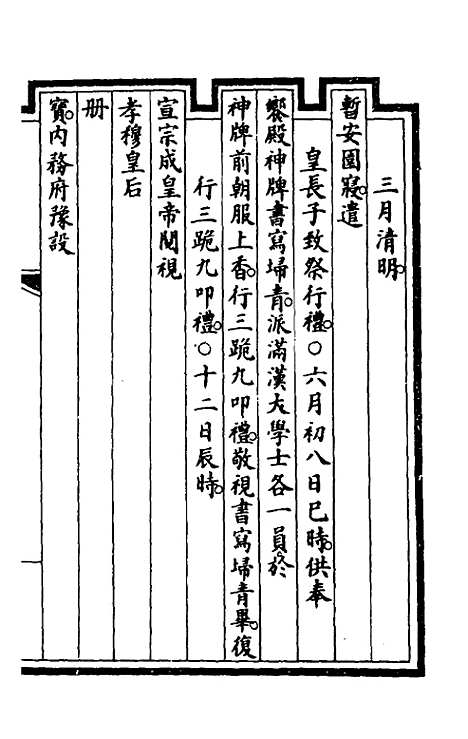 三月清明。
暫安園寢。遣
皇長子致祭行禮。○六月初八日巳時。供奉
饗殿神牌書寫埽青。派滿漢大學士各一員。於
神牌前朝服上香。行三跪九叩禮。敬視書寫埽青畢。復
行三跪九叩禮。○十二日辰時。
宣宗成皇帝閱視
孝穆皇后
册
寶。內務府豫設